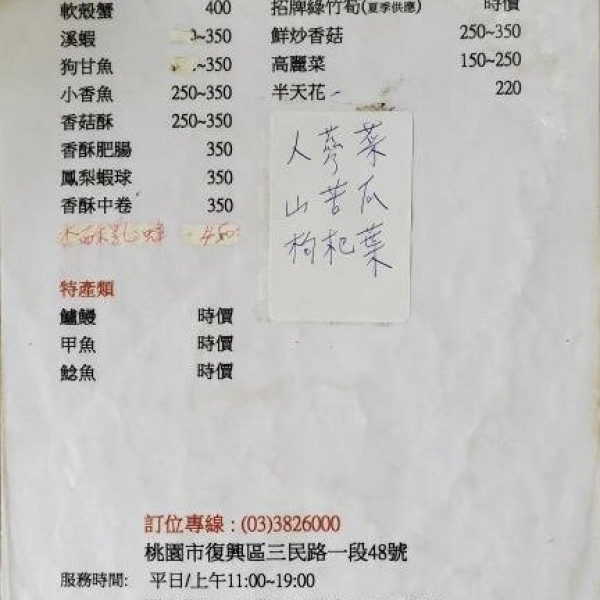 軟殼蟹 400
溪蝦 ~350
狗甘魚 ~350
小香魚 250~350
香菇酥 250~350
香酥肥腸 350
鳳梨蝦球 350
香酥中卷 350
450
特產類
鱸鰻 時價
甲魚 時價
鯰魚 時價
招牌綠竹筍(夏季供應) 時價
鮮炒香菇 250~350
高麗菜 150~250
半天花 220
人蔘菜
山苦瓜
枸杞葉
訂位專線 : (03)3826000
桃園市復興區三民路一段48號
服務時間: 平日/上午11:00~19:00